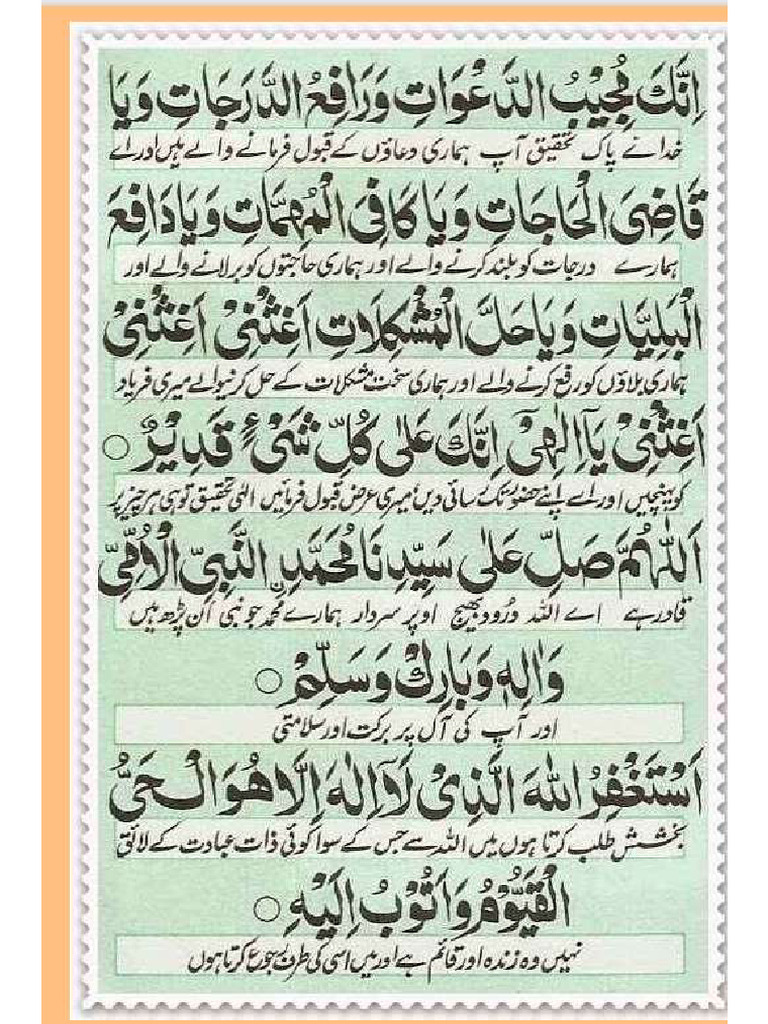 اِنَّكَ مُجِيْبُ الدَّعْوَاتِ وَرَافِعُ الدَّرَجَاتِ وَيَا
خدائے پاک تحقیق آپ ہماری دعاؤں کے قبول فرمانے والے ہیں اور اے
قَاضِىَ الْحَاجَاتِ وَيَا كَافِىَ الْمُهِمَّاتِ وَيَا دَافِعَ
ہمارے درجات کو بلند کرنے والے اور ہماری حاجتوں کو برلانے والے اور
الْبَلِيَّاتِ وَيَا حَلَّ الْمُشْكِلَاتِ اَغِثْنِىْ اَغِثْنِىْ
ہماری بلاؤں کو رفع کرنے والے اور ہماری سخت مشکلات کے حل کرنیوالے میری فریاد
اَغِثْنِىْ يَآ اِلٰهِىْٓ اِنَّكَ عَلٰى كُلِّ شَىْءٍ قَدِيْرٌ ○
کو پہنچیں اور اے اپنے حضور تک رسائی دیں میری عرض قبول فرمائیں الٰہی تحقیق تو ہی ہر چیز پر
اَللّٰهُمَّ صَلِّ عَلٰى سَيِّدِنَا مُحَمَّدِنِ النَّبِىِّ الْاُمِّىِّ
قادر ہے اے اللہ درود بھیج اوپر سردار ہمارے محمد جو نبی اَن پڑھ ہیں
وَاٰلِهٖ وَبَارِكْ وَسَلِّمْ ○
اور آپ کی آل پر برکت اور سلامتی
اَسْتَغْفِرُ اللهَ الَّذِىْ لَآ اِلٰهَ اِلَّا هُوَ الْحَىُّ
بخشش طلب کرتا ہوں میں اللہ سے جس کے سوا کوئی ذات عبادت کے لائق
الْقَيُّوْمُ وَاَتُوْبُ اِلَيْهِ ○
نہیں وہ زندہ اور قائم ہے اور میں اسی کی طرف رجوع کرتا ہوں